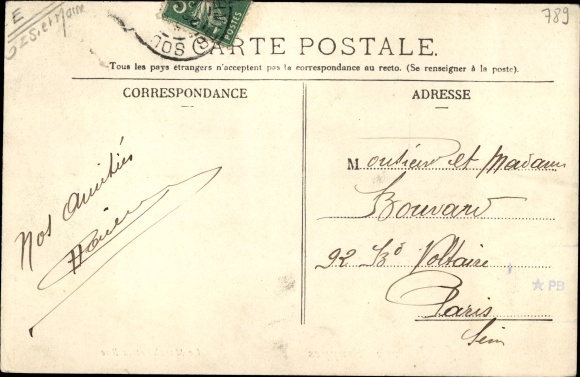 E
789
POSTES
CARTE POSTALE.
Tous les pays étrangers n'acceptent pas la correspondance au recto. (Se renseigner à la poste).
CORRESPONDANCE
ADRESSE
Nos Amitiés
Monsieur et Madame
Bouvard
92 Bd Voltaire
Paris
Seine
★ PB